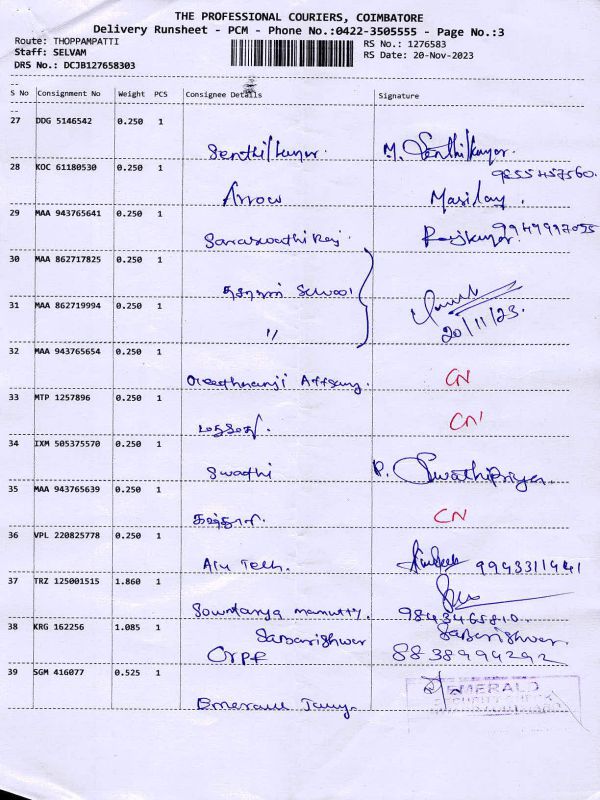 THE PROFESSIONAL COURIERS, COIMBATORE
Delivery Runsheet - PCM - Phone No.:0422-3505555 - Page No.:3
Route: THOPPAMPATTI
RS No.: 1276583
Staff: SELVAM
RS Date: 20-Nov-2023
DRS No.: DCJB127658303
S No Consignment No Weight PCS Consignee Details Signature
27 DDG 5146542 0.250 1
Senthilkumar. M. Senthilkumar.
28 KOC 61180530 0.250 1
Arrow
29 MAA 943765641 0.250 1
Saraswathi Raj. Rajkumar.
30 MAA 862717825 0.250 1
School
31 MAA 862719994 0.250 1
20/11/23.
"
32 MAA 943765654 0.250 1
CN
33 MTP 1257896 0.250 1
CN
34 IXM 505375570 0.250 1
Swathi P. Swathipriya.
35 MAA 943765639 0.250 1
CN
36 VPL 220825778 0.250 1
Tech. 9943311941
37 TRZ 125001515 1.860 1
Sowndarya 9843465810.
38 KRG 162256 1.085 1
Sabarishwar Sabarishwar
CRPF 8838994292
39 SGM 416077 0.525 1
EMERALD
Emerald